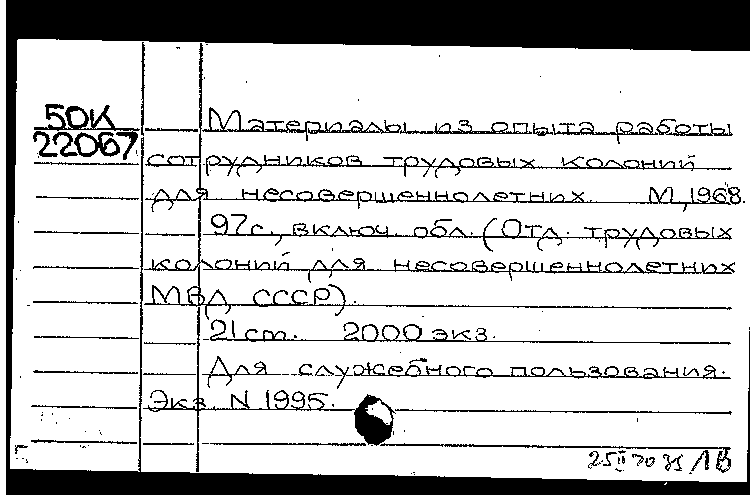 50К
22067
Материалы из опыта работы
сотрудников трудовых колоний
для несовершеннолетних. М, 1968.
97с., включ. обл. (Отд. трудовых
колоний для несовершеннолетних
МВД СССР).
21 cm. 2000 экз.
Для служебного пользования.
Экз. N 1995.
25 II 70 ЛВ